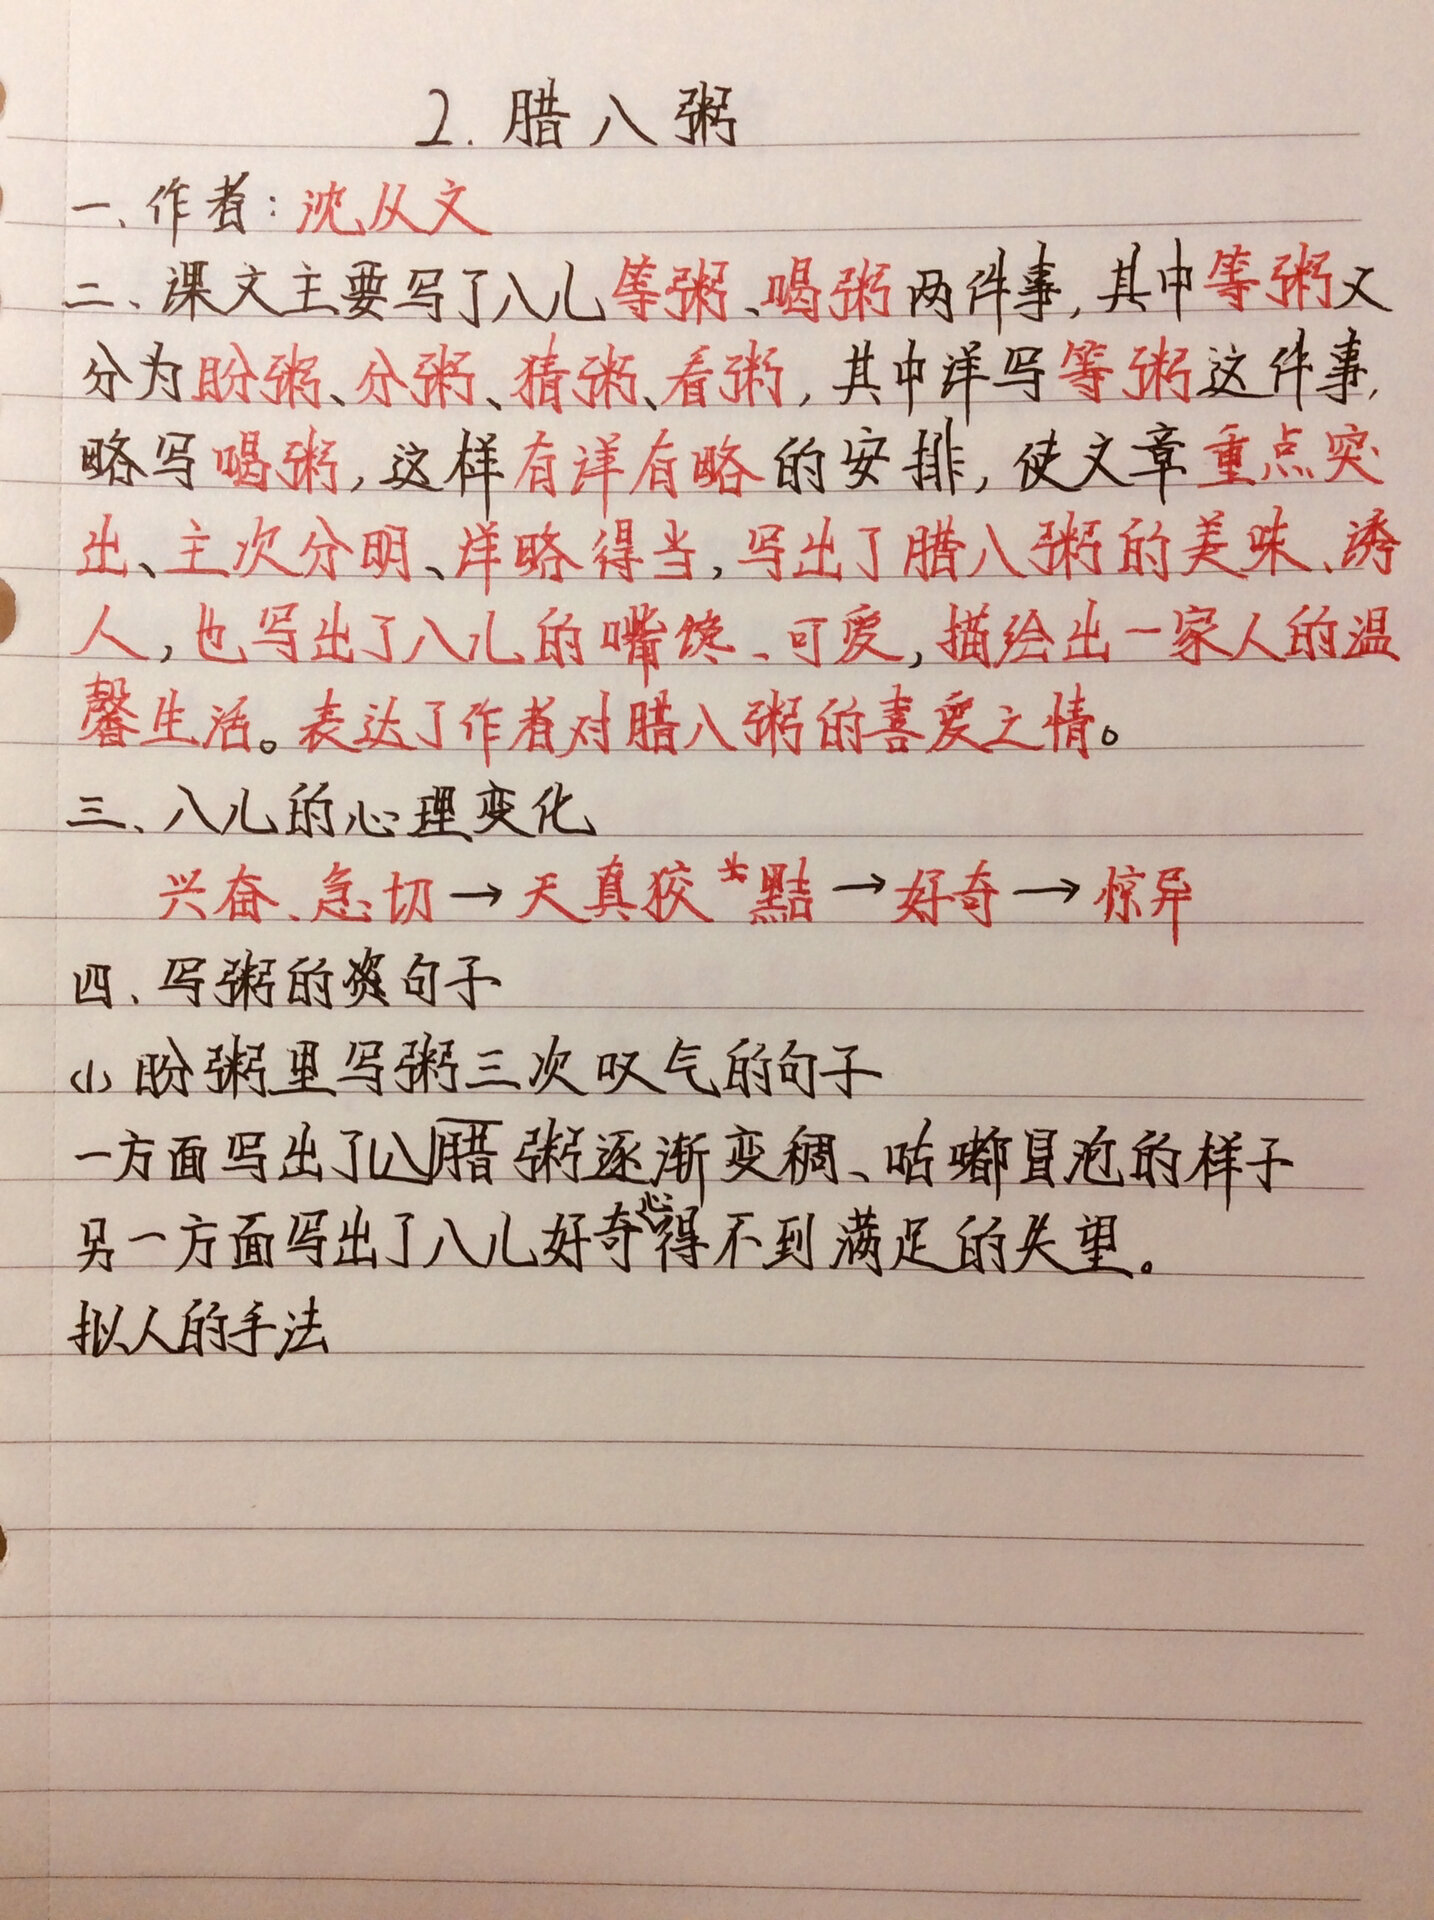 2. 腊八粥
一、作者：沈从文
二、课文主要写了八儿等粥、喝粥两件事，其中等粥又
分为盼粥、分粥、猜粥、看粥，其中详写等粥这件事，
略写喝粥，这样有详有略的安排，使文章重点突
出、主次分明、详略得当，写出了腊八粥的美味、诱
人，也写出了八儿的嘴馋、可爱，描绘出一家人的温
馨生活。表达了作者对腊八粥的喜爱之情。
三、八儿的心理变化
兴奋、急切→天真狡黠→好奇→惊异
四、写粥的句子
(1) 盼粥里写粥三次叹气的句子
一方面写出了八腊粥逐渐变稠、咕嘟冒泡的样子
另一方面写出了八儿好奇心得不到满足的失望。
拟人的手法